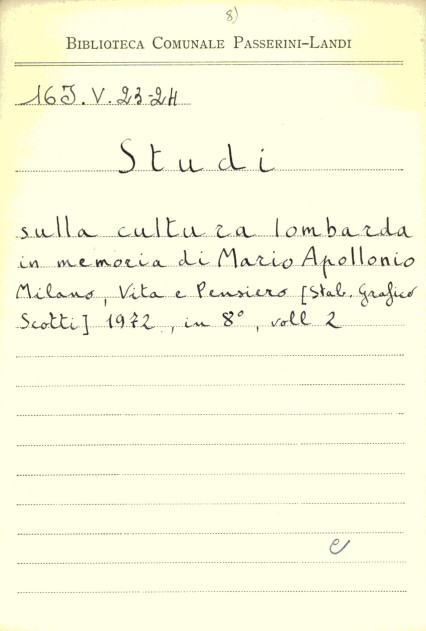 8)
BIBLIOTECA COMUNALE PASSERINI-LANDI
16J.V.23-24
Studi
sulla cultura lombarda
in memoria di Mario Apollonio
Milano, Vita e Pensiero [Stab. Grafico
Scotti] 1972, in 8°, voll 2
e